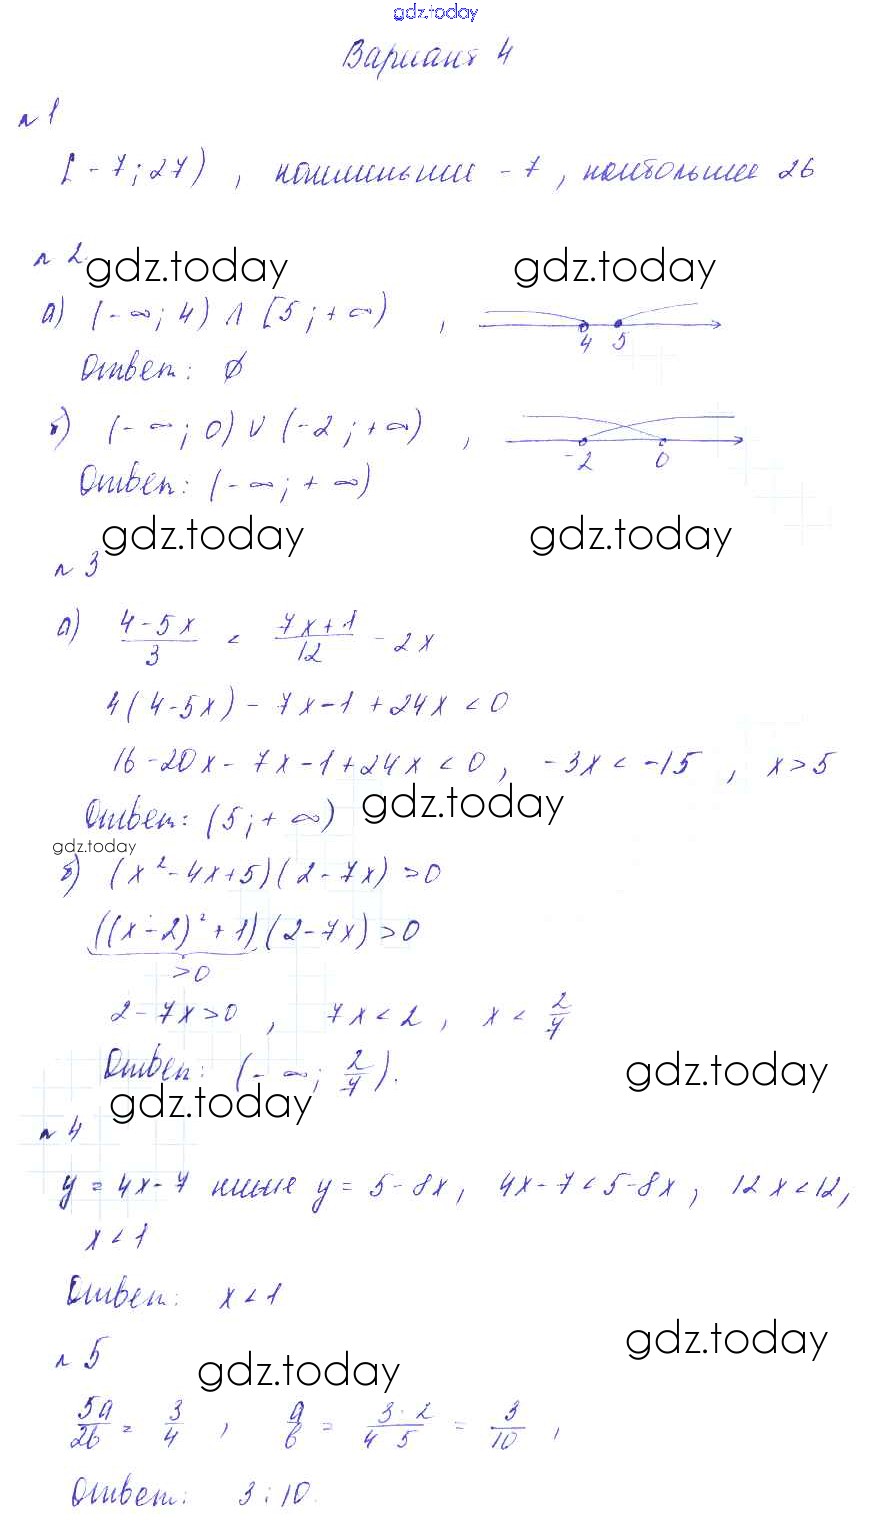 gdz.today
Вариант 4
№1
[-7; 27) , наименьшее -7 , наибольшее 26
№2.
gdz.today gdz.today
а) (-∞; 4) ∧ [5; +∞) ,
4 5
Ответ: ∅
б) (-∞; 0) ∪ (-2; +∞) ,
-2 0
Ответ: (-∞; +∞)
gdz.today gdz.today
№3
а) (4-5x)/3 < (7x+1)/12 - 2x
4(4-5x) - 7x-1+24x < 0
16-20x-7x-1+24x < 0, -3x < -15 , x > 5
Ответ: (5; +∞) gdz.today
gdz.today
б) (x²-4x+5)(2-7x) > 0
((x-2)²+1)(2-7x) > 0
>0
2-7x > 0 , 7x < 2 , x < 2/7
Ответ: (-∞; 2/7).
gdz.today
gdz.today
№4
y = 4x-7 ниже y = 5-8x, 4x-7 < 5-8x, 12x < 12,
x < 1
Ответ: x < 1
gdz.today
№5
gdz.today
5a/2b = 3/4 , a/b = 3·2/4 5 = 3/10 ,
Ответ: 3:10.